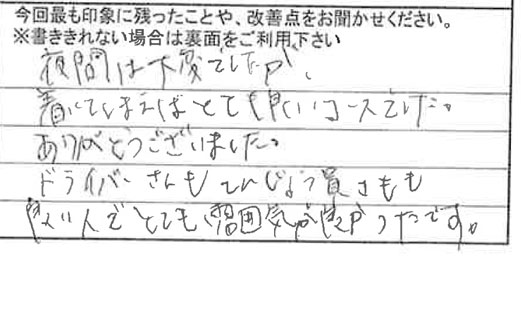 今回最も印象に残ったことや、改善点をお聞かせください。
※書ききれない場合は裏面をご利用下さい
夜間は大変でしたが、
着いてしまえばとても良いコースでした。
ありがとうございました。
ドライバーさんもてんじょう員さもも
良い人でとても雰囲気が良かったです。